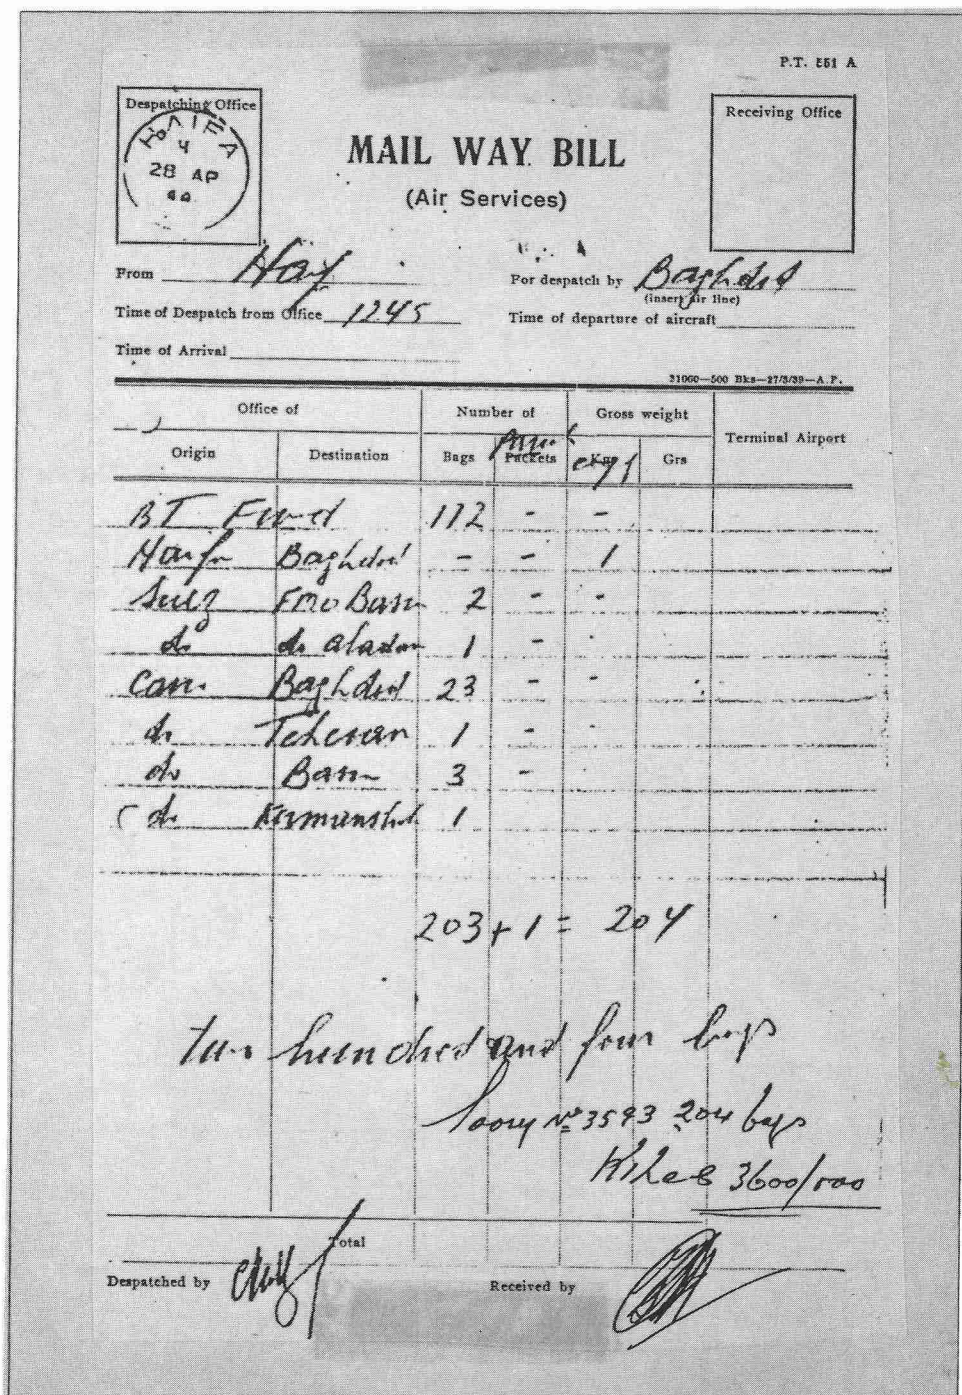 P.T. 551 A
Despatching Office
HAIFA
4
28 AP
44
Receiving Office
MAIL WAY BILL
(Air Services)
From Haif
For despatch by Baghdad
(insert air line)
Time of Despatch from Office 1245
Time of departure of aircraft
Time of Arrival
31060—500 Bks—27/3/39—A.P.
Office of Number of Gross weight Terminal Airport
Origin Destination Bags Packets Kgs Grs
BT Fwd 172 - -
Haifa Baghdad - - 1
Suez FPO Basra 2 - -
do do 1 - -
Cairo Baghdad 23 - -
do Teheran 1 - -
do Basra 3 -
do Kermanshah 1
203 + 1 = 204
two hundred and four bags
Lorry No 3593 204 bags
Kilos 3600/000
Total
Despatched by
Received by